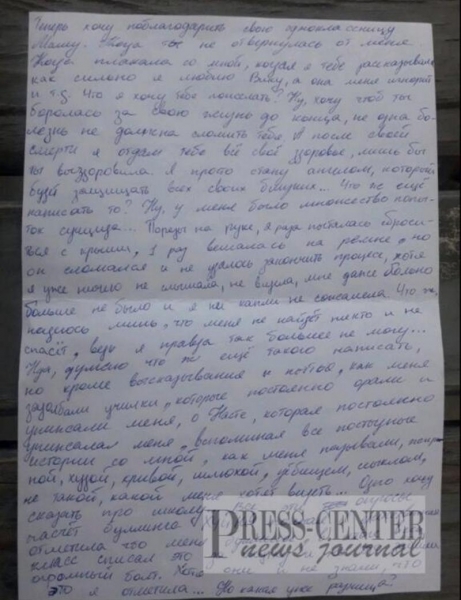 Теперь хочу поблагодарить свою одноклассницу
Машу. Тогда ты не отвернулась от меня
Тогда плакала со мной, когда я тебе рассказывала
как сильно я люблю , а она меня игнорит
и т.д. Что я хочу тебе пожелать? Ну, хочу чтоб ты
боролась за свою жизнь до конца, не одна бо-
лезнь не должна сломить тебя. А после своей
смерти я отдам тебе всё своё здоровье, лишь бы
ты выздоровила. Я просто стану ангелом, который
будет защищать всех своих близких... Что же ещё
написать то? Ну, у меня было множество попы-
ток суицида... Порезы на руке, я раза пыталась сброси-
ться с крыши, 1 раз вешалась на ремне, но
он сломался и не удалось закончить процесс, хотя
я уже ничего не слышала, не видела, мне даже больно
больше не было и я ни капли не сожалела. Что ж,
надеюсь лишь, что меня не найдёт никто и не
спасёт, ведь я правда так больше не могу...
Нуа, думаю что же ещё такого написать,
но кроме высказывания о том, как меня
задолбали училки, которые постоянно орали и
унижали меня, о Нате, которая постоянно
унижала меня, вспоминая все постыдные
истории со мной, как меня называли,
худой, кривой, шлюхой, уёбищем,
не такой, какой меня хотят видеть... Одно хочу
сказать про школу опросы
насчёт буллинга
отметила что меня
класс списал это
огромный болт. Хотя они и не знали, что
это я отметила... Но какая уже разница?
PRESS-CENTER
news journal